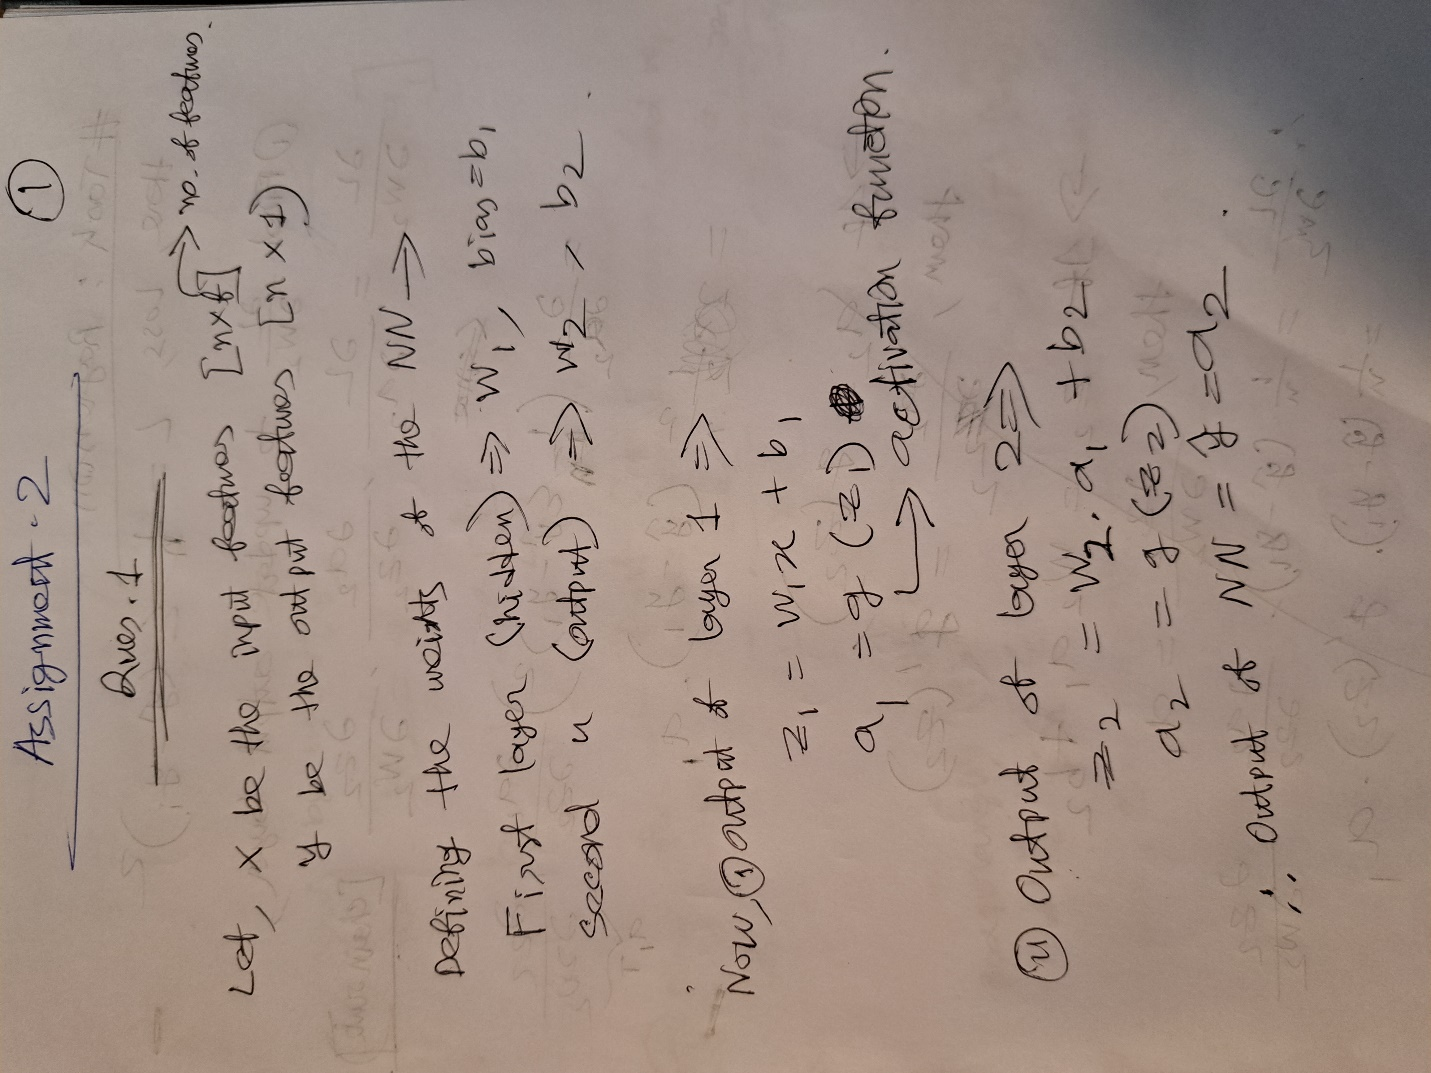 ①
Assignment - 2
Ques. 1
Let, x be the input features [n×f] → no. of features.
y be the output features [n × 1)
Defining the weights of the NN →
First layer (hidden) ⇒ W₁, bias = b₁
Second " (output) ⇒ W₂, b₂.
Now, ① output of layer 1 ⇒
z₁ = W₁x + b₁
a₁ = g(z₁)
↳ activation function.
② Output of layer 2 ⇒
z₂ = W₂.a₁ + b₂
a₂ = g(z₂)
∴ Output of NN = ŷ = a₂.